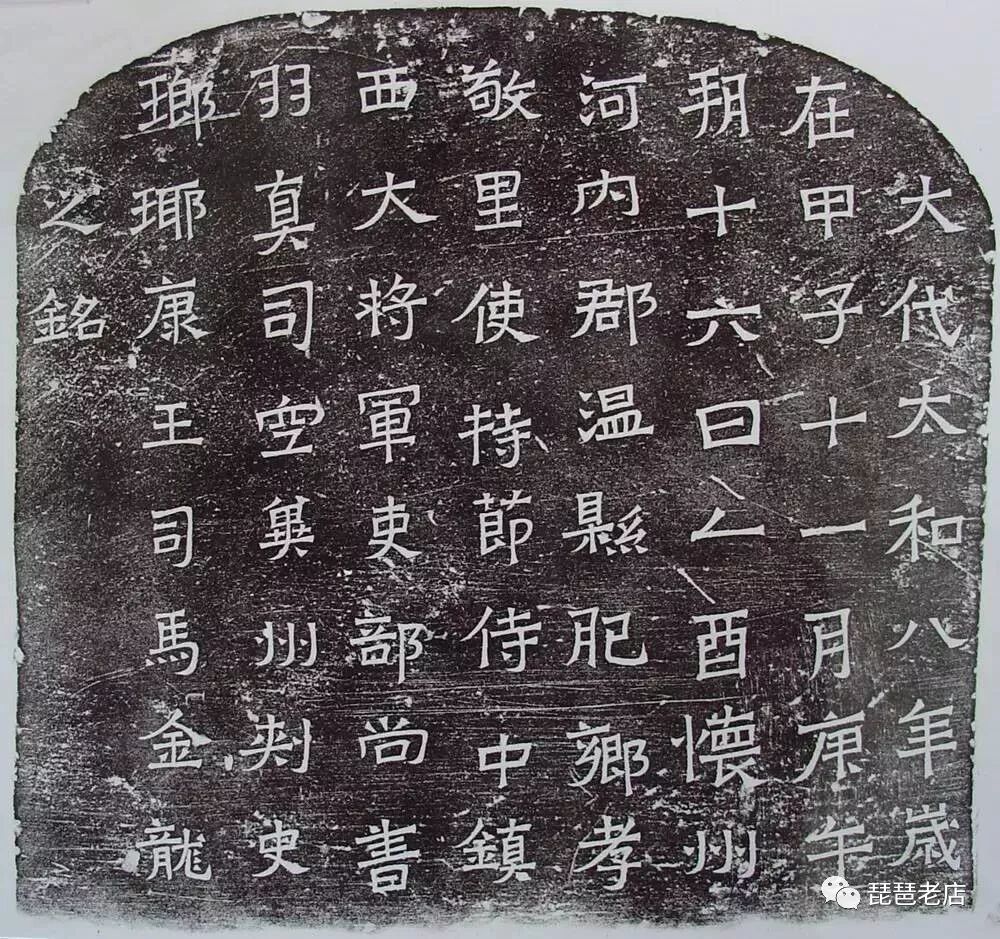 大代太和八年歲
在甲子十一月庚午
朔十六日乙酉懷州
河內郡温縣肥鄉孝
敬里使持節侍中鎮
西大將軍吏部尚書
羽真司空冀州刺史
瑯琊康王司馬金龍
之銘
琵琶老店